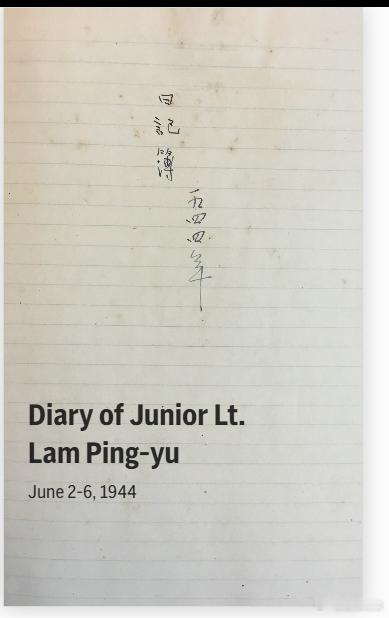 日記簿
一九四四年
Diary of Junior Lt.
Lam Ping-yu
June 2-6, 1944